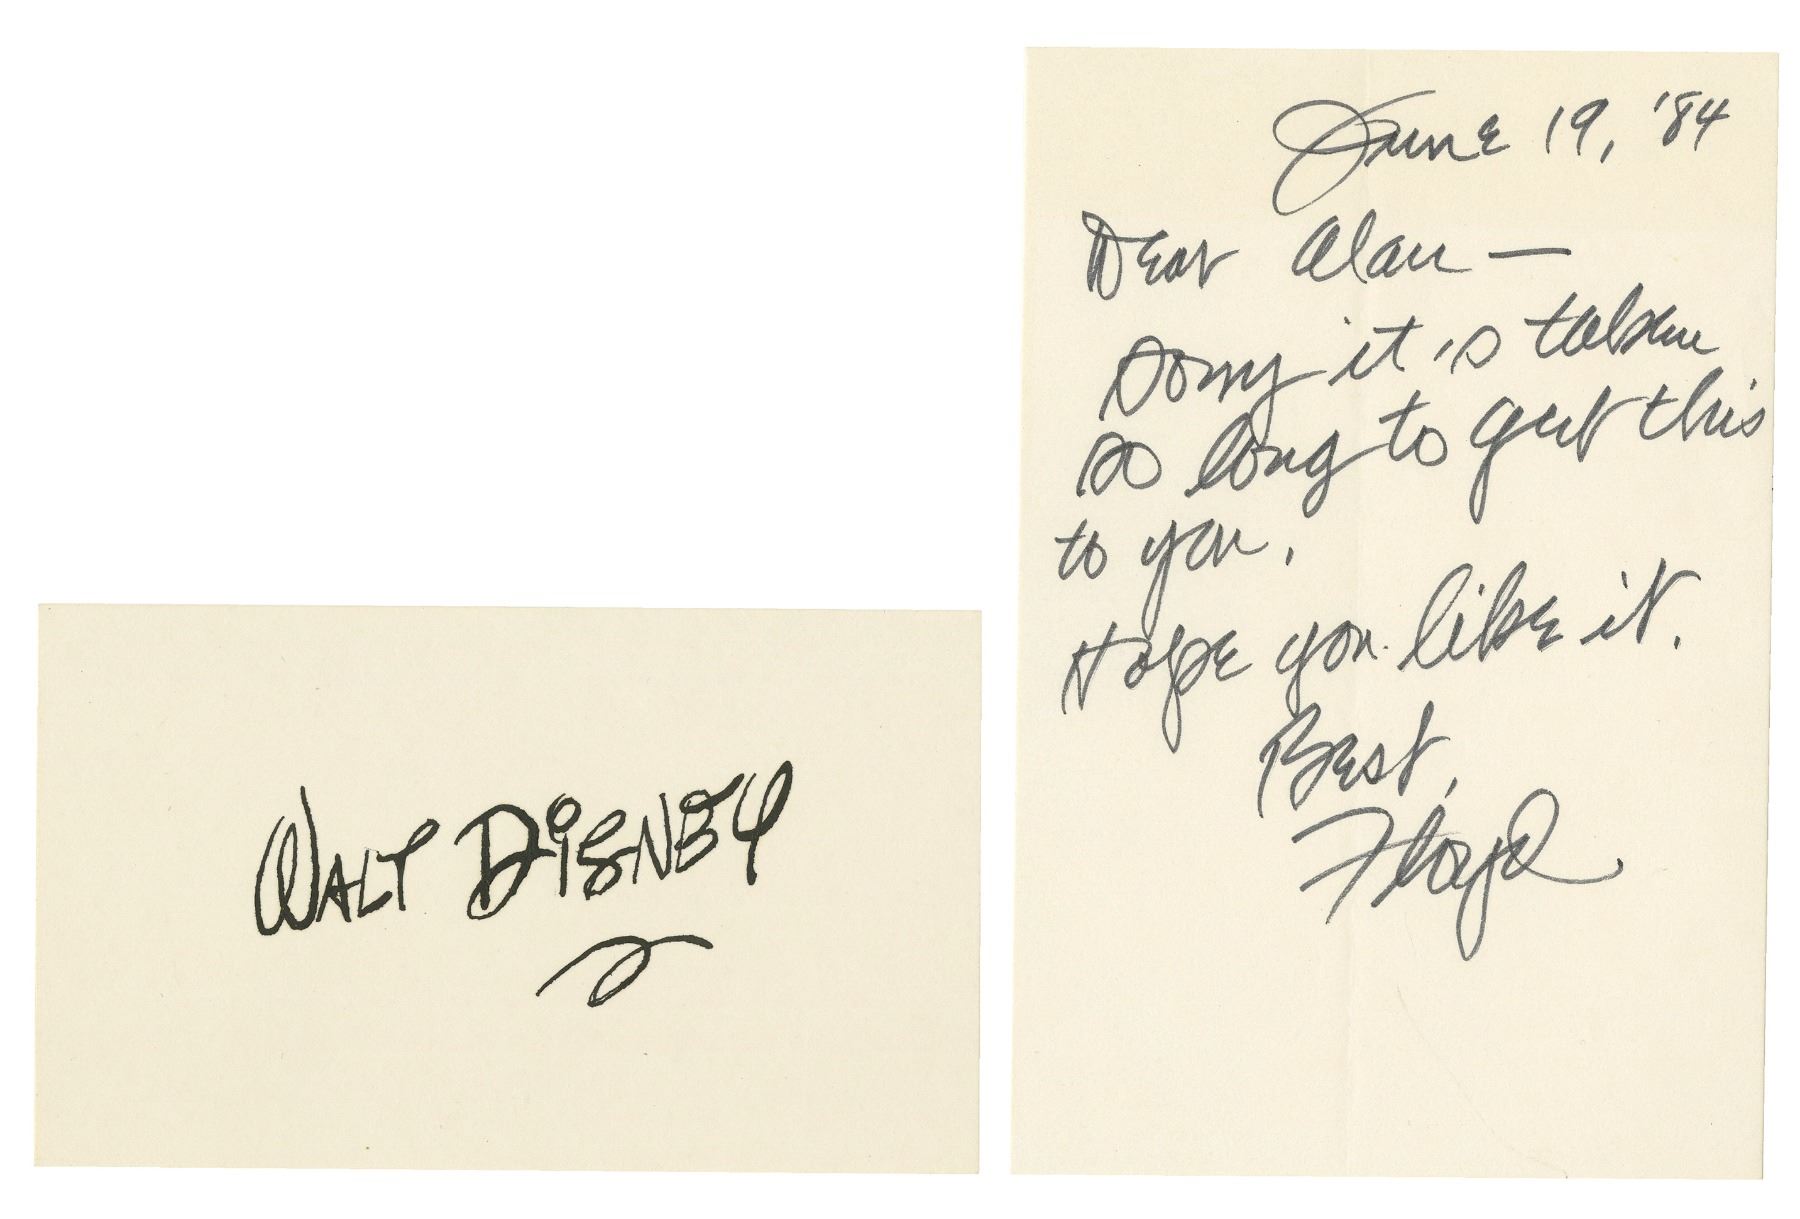 WALT DISNEY
June 19, '84
Dear Alan —
Sorry it is taken
so long to get this
to you.
Hope you like it.
Best,
Floyd